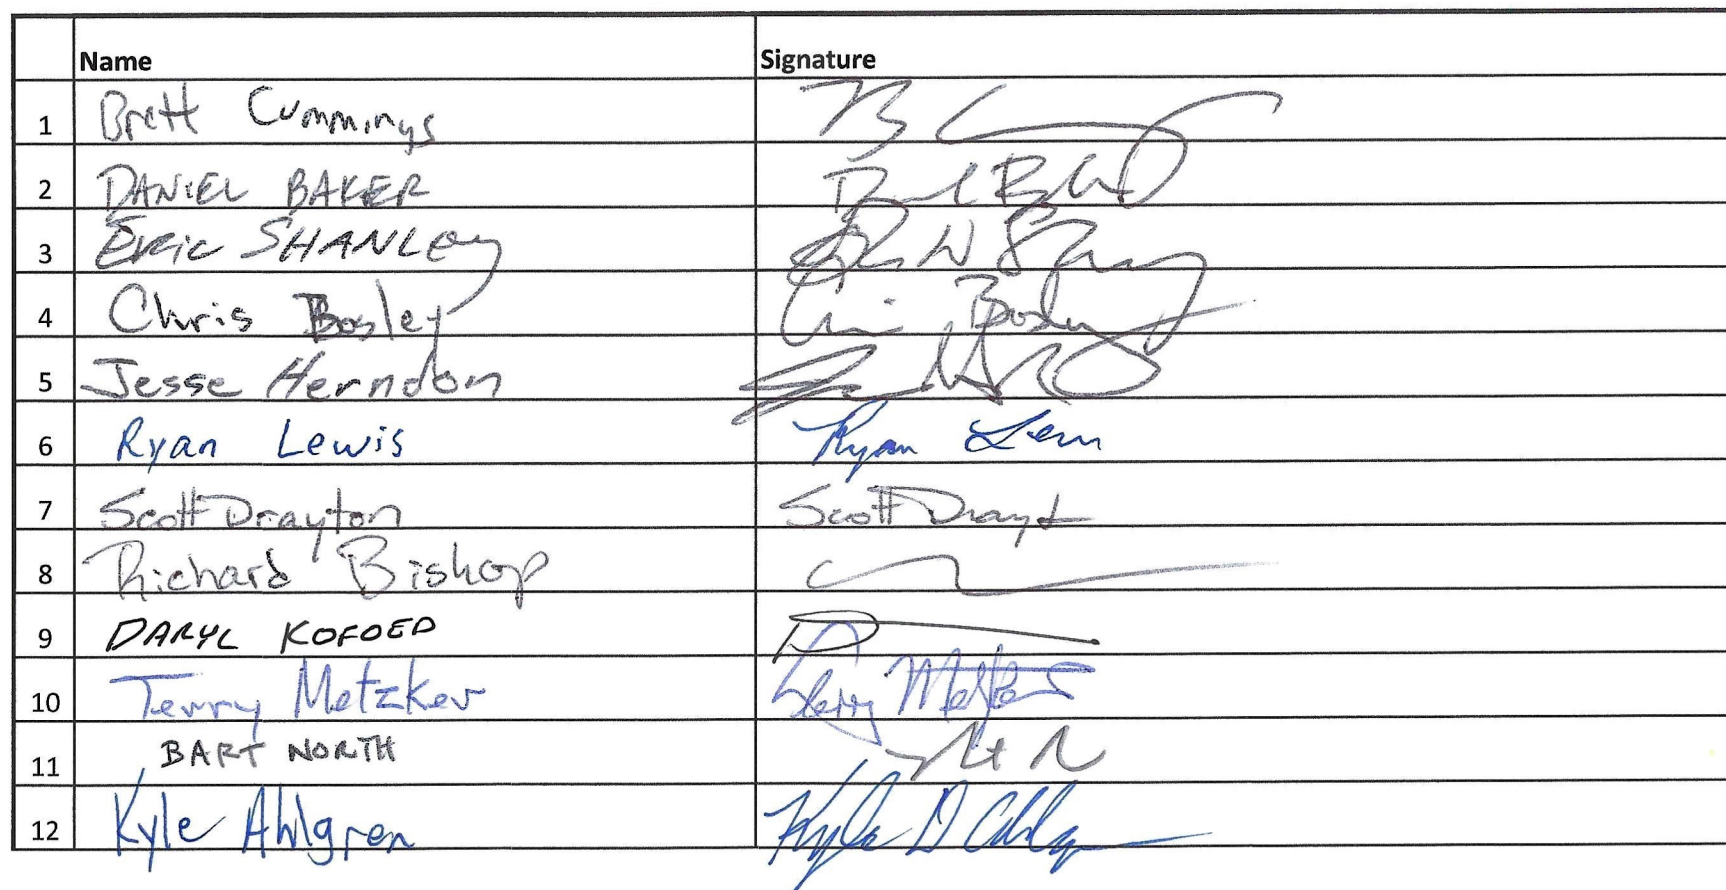 Name Signature
1 Brett Cummings
2 DANIEL BAKER
3 ERIC SHANLEY
4 Chris Bosley Bosley
5 Jesse Herndon
6 Ryan Lewis Ryan Lewis
7 Scott Drayton Scott Drayt
8 Richard Bishop
9 DARYL KOFOED
10 Terry Metzker Terry Metzker
11 BART NORTH
12 Kyle Ahlgren Kyle D Ahlg